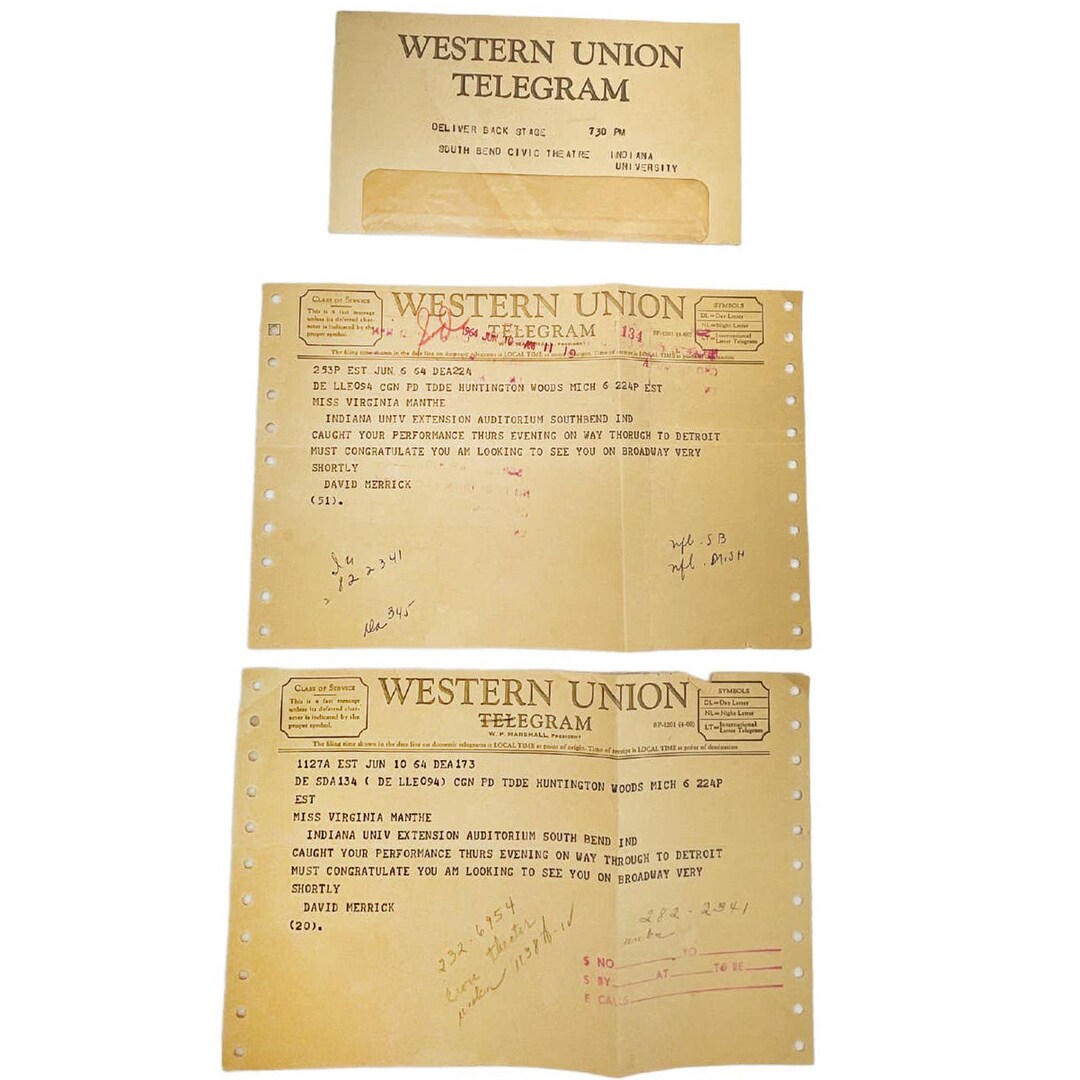 WESTERN UNION
TELEGRAM
DELIVER BACK STAGE 730 PM
SOUTH BEND CIVIC THEATRE INDIANA
UNIVERSITY
CLASS OF SERVICE
This is a fast message
unless its deferred char-
acter is indicated by the
proper symbol.
WESTERN UNION
TELEGRAM
1964 JUN 10 AM 11 19
134
SYMBOLS
DL=Day Letter
NL=Night Letter
LT=International
Letter Telegram
The filing time shown in the date line on domestic telegrams is LOCAL TIME at point of origin. Time of receipt is LOCAL TIME at point of destination
253P EST JUN 6 64 DEA224
DE LLE094 CGN PD TDDE HUNTINGTON WOODS MICH 6 224P EST
MISS VIRGINIA MANTHE
INDIANA UNIV EXTENSION AUDITORIUM SOUTHBEND IND
CAUGHT YOUR PERFORMANCE THURS EVENING ON WAY THORUGH TO DETROIT
MUST CONGRATULATE YOU AM LOOKING TO SEE YOU ON BROADWAY VERY
SHORTLY
DAVID MERRICK
(51).
82 2341
345
nfl. SB
nfl.
CLASS OF SERVICE
This is a fast message
unless its deferred char-
acter is indicated by the
proper symbol.
WESTERN UNION
TELEGRAM
W. P. MARSHALL, PRESIDENT
SF-1201 (4-60)
SYMBOLS
DL=Day Letter
NL=Night Letter
LT=International
Letter Telegram
The filing time shown in the date line on domestic telegrams is LOCAL TIME at point of origin. Time of receipt is LOCAL TIME at point of destination
1127A EST JUN 10 64 DEA173
DE SDA134 ( DE LLE094) CGN PD TDDE HUNTINGTON WOODS MICH 6 224P
EST
MISS VIRGINIA MANTHE
INDIANA UNIV EXTENSION AUDITORIUM SOUTH BEND IND
CAUGHT YOUR PERFORMANCE THURS EVENING ON WAY THROUGH TO DETROIT
MUST CONGRATULATE YOU AM LOOKING TO SEE YOU ON BROADWAY VERY
SHORTLY
DAVID MERRICK
(20).
232-6954
Civic theater
1138A
282-2341
S NO TO
S BY AT TO BE
E CALLS